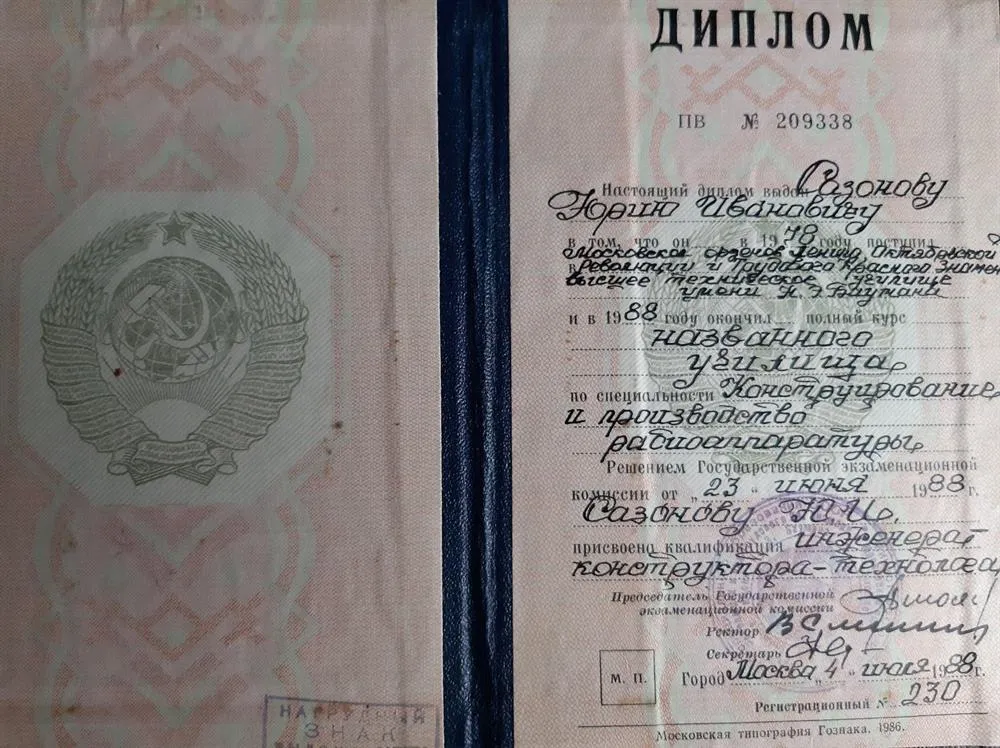 НАГРУДНЫЙ
ЗНАК
ДИПЛОМ
ПВ № 209338
Настоящий диплом выдан Сазонову
Юрию Ивановичу
в том, что он в 1978 году поступил
в Московское орденов Ленина, Октябрьской
Революции и Трудового Красного Знамени
высшее техническое училище
имени Н.Э.Баумана
и в 1988 году окончил полный курс
названного
училища
по специальности Конструирование
и производство
радиоаппаратуры
Решением Государственной экзаменационной
комиссии от „23“ июня 1988 г.
Сазонову Ю.И.
присвоена квалификация инженера
конструктора-технолога
Председатель Государственной
экзаменационной комиссии
Ректор
Секретарь
М. П.
Город Москва, 4 июля 1988 г.
Регистрационный № 230
Московская типография Гознака. 1986.